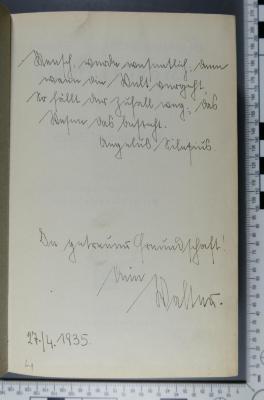 Mensch, werde wesentlich, denn
wenn die Welt vergeht,
So fällt der Zufall weg; das
Wesen das besteht.
Angelus Silesius
In getreuer Freundschaft!
Dein
Walter.
27./4. 1935.